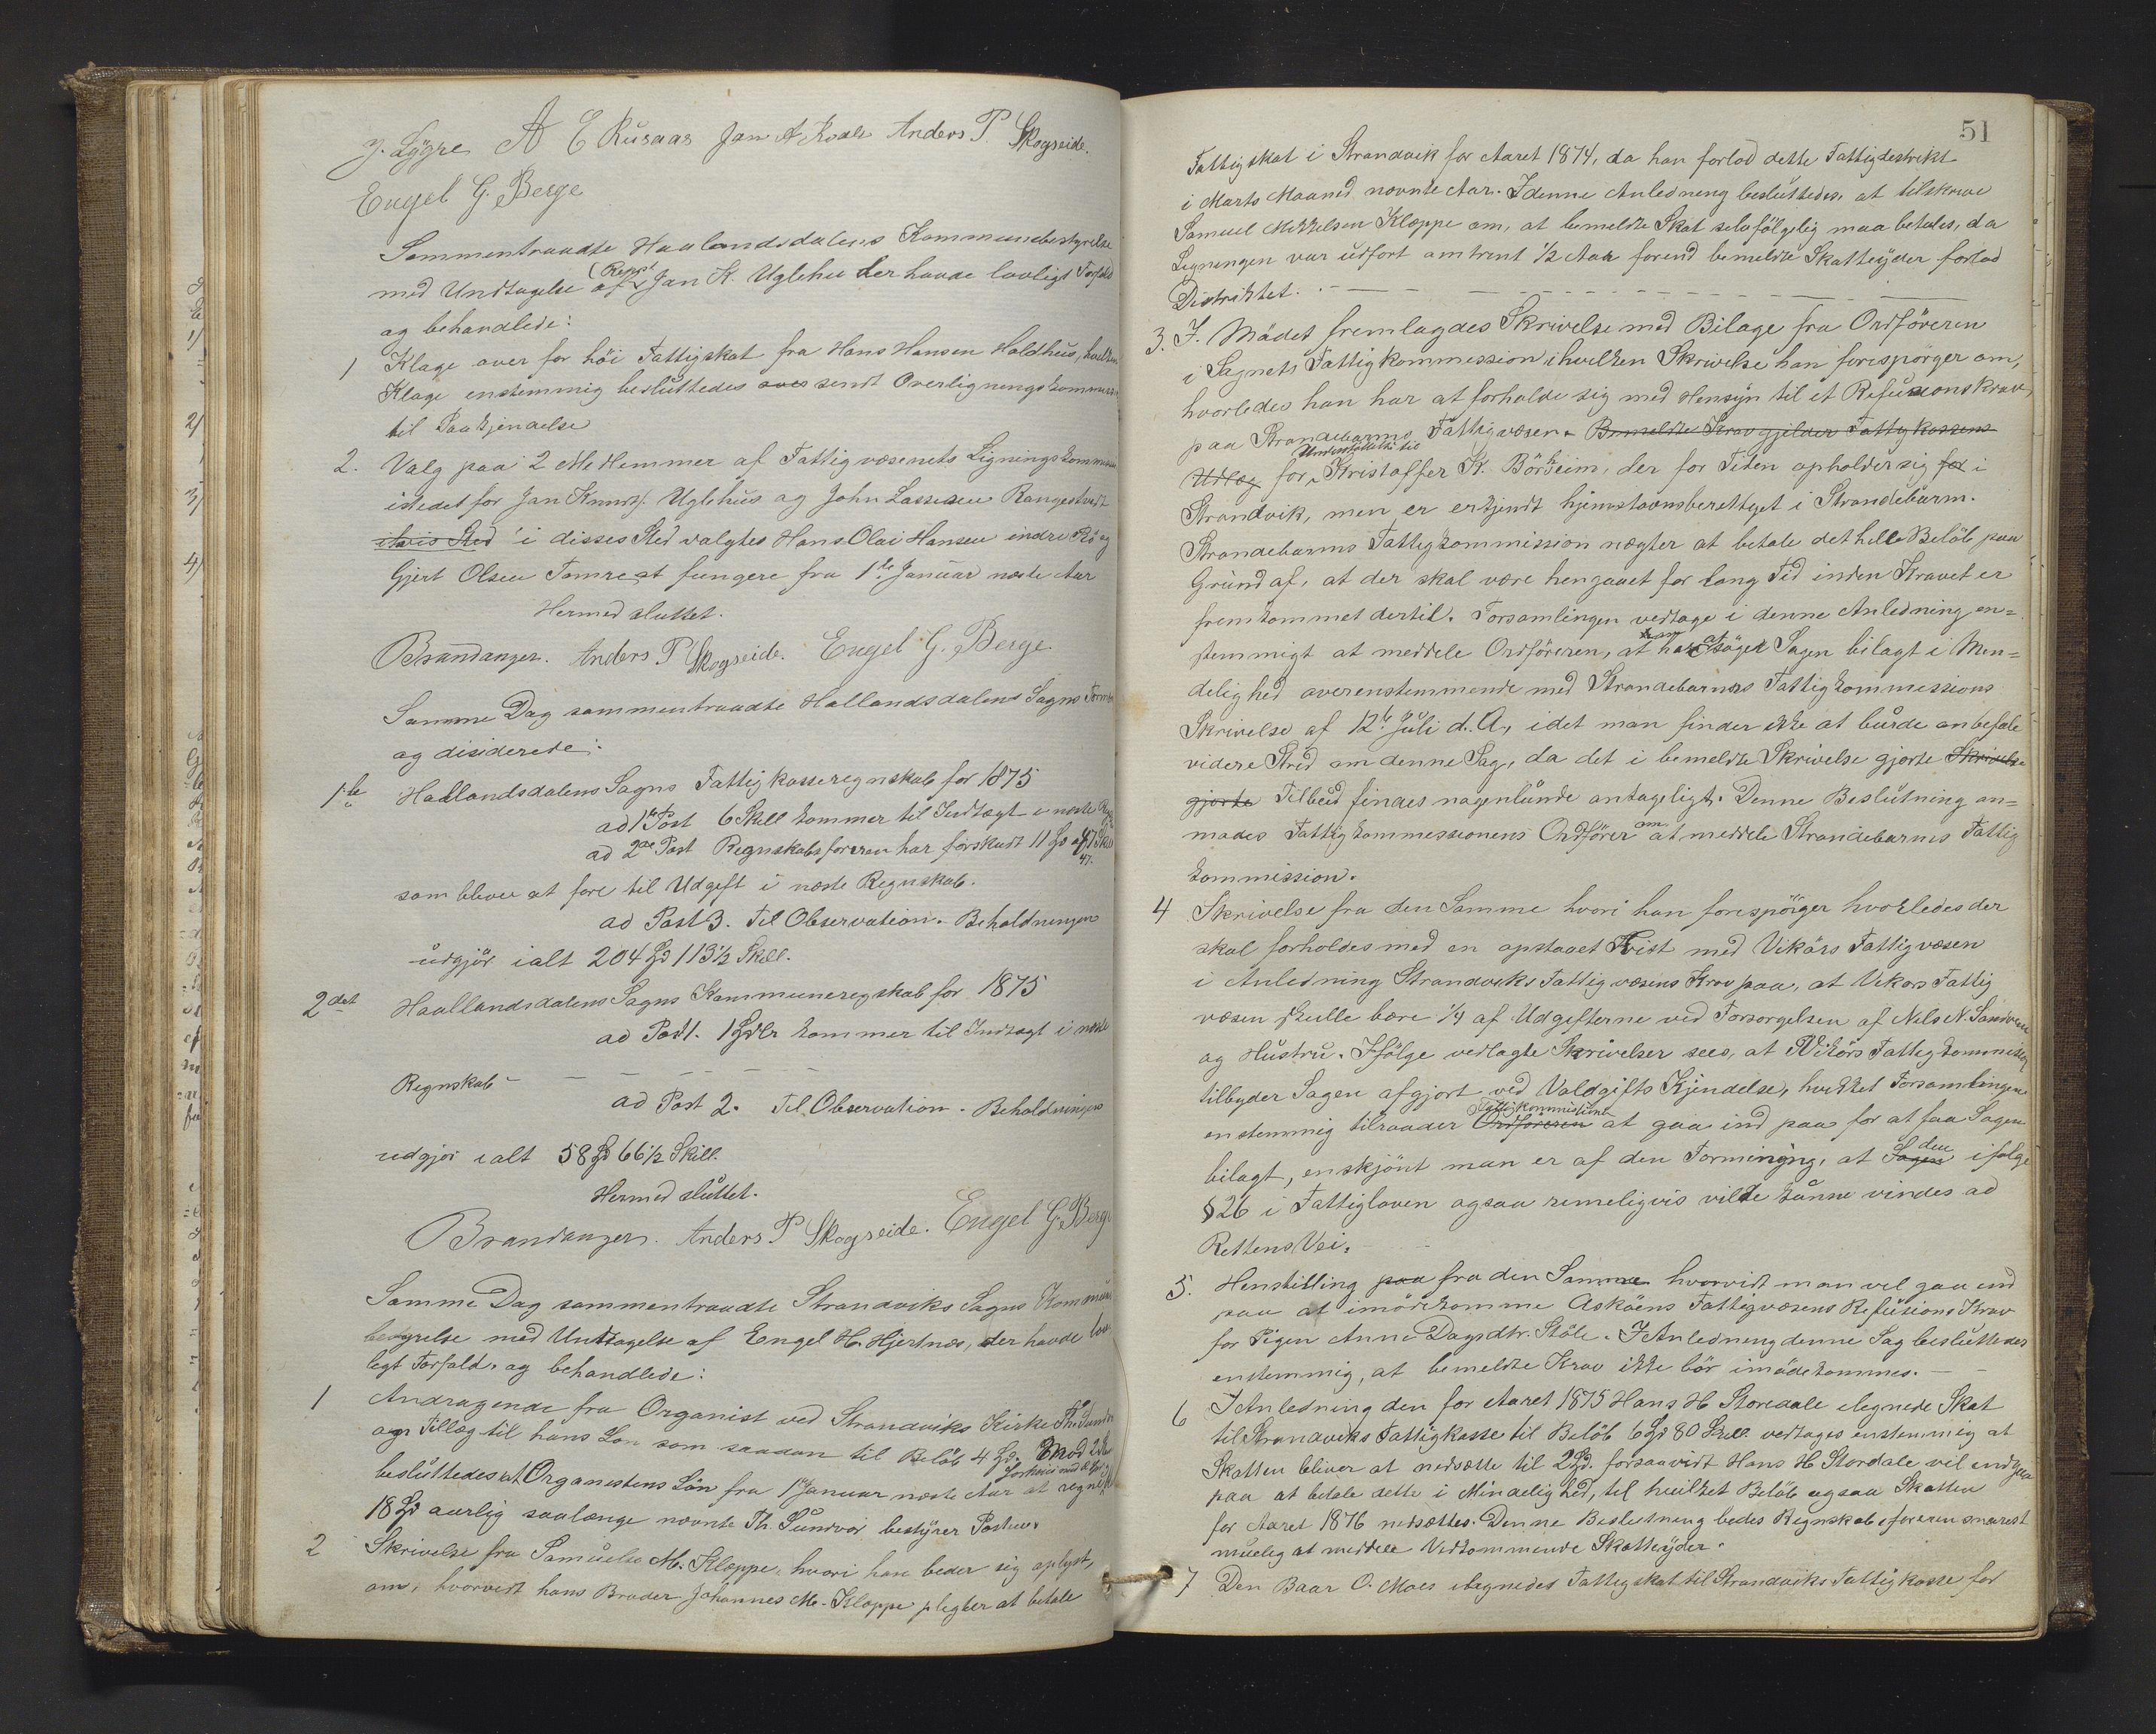 J. Lygre A E Rusaas Jan A Kvale Anders P. Skogseide.
Engel G. Berge
Sammentraadte Haalandsdalens Kommunebestyrelse
med Undtagelse af (Repst Jan K. Uglehu der havde lovligt Forfald
og behandlede:
1 Klage over for höi Fattigskat fra Hans Hansen Holdhus, hvilken
Klage enstemmig besluttedes sendt Overligningskommission
til Paakjendelse
2. Valg paa 2 Medlemmer af Fattigvæsenets Ligningskommission
istedetfor Jan Knuds. Uglehus og John Lassesen Rangestvedt
i hvis Sted i disses Sted valgtes Hans Olai Hansen indre Bö og
Gjert Olsen Tomre at fungere fra 1ste Januar næste Aar
Hermed sluttet.
Brandanger. Anders P Skogseide. Engel G. Berge
Samme Dag sammentraadte Hallandsdalens Sogns
og disiderede:
1ste Hallandsdalens Sogns Fattigkasseregnskab for 1875
ad 1ste Post 6 Skill kommer til Indtægt i næste
ad 2den Post Regnskabsföreren har forskudt 11 Spd og 47 Skil
47.
som bliver at före til Udgift i næste Regnskab.
ad Post 3. Til Observation. Beholdningen
udgjör ialt 204 Spd 113 1/2 Skill.
2det Haallandsdalens Sogns Kommuneregskab for 1875
ad Post 1. 1 Spdlr kommer til Indtægt i næste
Regnskab - — — — — —
ad Post 2. Til Observation. Beholdningen
udgjör ialt 58 Spd 66 1/2 Skill.
Hermed sluttet.
Brandanger. Anders P Skogseide. Engel G. Berge
Samme Dag sammentraadte Strandviks Sogns Kommune
bestyrelse med Undtagelse af Engel H. Hjertnæs, der havde lov
ligt Forfald. og behandlede:
1 Andragende fra Organist ved Strandviks Kirke Th. Sundvor
om Tillæg til hans Lön som saadan til Belöb 4 Spd. Mod 2
besluttedes at Organistens Lön fra 1ste Januar næste Aar at regne
18 Spd aarlig saalænge nævnte Th. Sundvor bestyrer Posten.
2 Skrivelse fra Samuel M. Kleppe, hvori han beder sig oplyst,
om, hvorvidt hans Broder Johannes M. Kleppe pligter at betale
51
Fattigskat i Strandvik for Aaret 1874, da han forlod dette Fattigdestrikt
i Marts Maaned nævnte Aar. I denne Anledning besluttedes, at tilskrive
Samuel Mikkelsen Kleppe om, at bemeldte Skat selvfölgelig maa betales, da
Legningen var udfört omtrent 1/2 Aar förend bemeldte Skatteyder forlod
Distriktet. - — — — — — —
3. I Mödet fremlagdes Skrivelse med Bilage fra Ordföreren
i Sognets Fattigkommission i hvilken Skrivelse han forespörger om,
hvorledes han har at forholde sig med Hensyn til et Refusionskrav,
paa Strandebarms Fattigvæsen. Bemeldte Krav gjelder Fattigkassens
Understöttelse til
Udlæg for Kristoffer K. Börsheim, der for Tiden opholder sig for i
Strandvik, men er erkjendt hjemstavnsberettiget i Strandebarm.
Strandebarms Fattigkommission nægter at betale det hele Belöb paa
Grund af, at der skal være hengaaet for lang Tid inden Kravet er
fremkommet dertil. Forsamlingen vedtoge i denne Anledning en=
stemmigt at meddele Ordföreren, at han söger Sagen bilagt i Min=
delighed overenstemmende med Strandebarms Fattigkommissions
Skrivelse af 12te Juli d. A, idet man finder ikke at burde anbefale
videre Strid om denne Sag, da det i bemeldte Skrivelse gjorte Skrivelse
gjorte Tilbud findes nogenlunde antageligt. Denne Beslutning an=
modes Fattigkommissionens Ordförer om at meddele Strandebarms Fattig
kommission.
4 Skrivelse fra den Samme hvori han forespörger hvorledes der
skal forholdes med en opstaaet Tvist med Vikörs Fattigvæsen
i Anledning Strandviks Fattigvæsens Krav paa, at Vikörs Fattig
væsen skulle bære 1/4 af Udgifterne ved Forsorgelsen af Nils N. Sandven
og Hustru. Ifölge vedlagte Skrivelser sees, at Vikörs Fattigkommission
tilbyder Sagen afgjort ved Voldgifts Kjendelse, hvilket Forsamlingen
Fattigkommissionen
enstemmig tilraader Ordföreren at gaa ind paa for at faa Sagen
bilagt, enskjönt man er af den Formening, at Sagen den ifölge
§ 26 i Fattigloven ogsaa rimeligvis vilde kunne vindes ad
Rettens Vei.
5. Henstilling paa fra den Samme hvorvidt man vil gaa ind
paa at imödekomme Asköens Fattigvæsens Refusions Krav
for Pigen Anna Dagsdtr. Stöle. I Anledning denne Sag besluttedes
enstemmig, at bemeldte Krav ikke bör imödekommes. —
6 I Anledning den for Aaret 1875 Hans H Stordale ilegnede Skat
til Strandviks Fattigkasse til Belöb 6 Spd 80 Skill. vedtages enstemmig at
Skatten bliver at nedsætte til 2 Spd. forsaavidt Hans H Stordale vil indgaa
paa at betale dette i Mindelighed, til hvilket Belöb ogsaa Skatten
for Aaret 1876 nedsættes. Denne Beslutning bedes Regnskabsföreren snarest
muelig at meddele Vedkommende Skatteyder.
7 Den Baar O. Moes ilegnedes Fattigskat til Strandviks Fattigkasse for